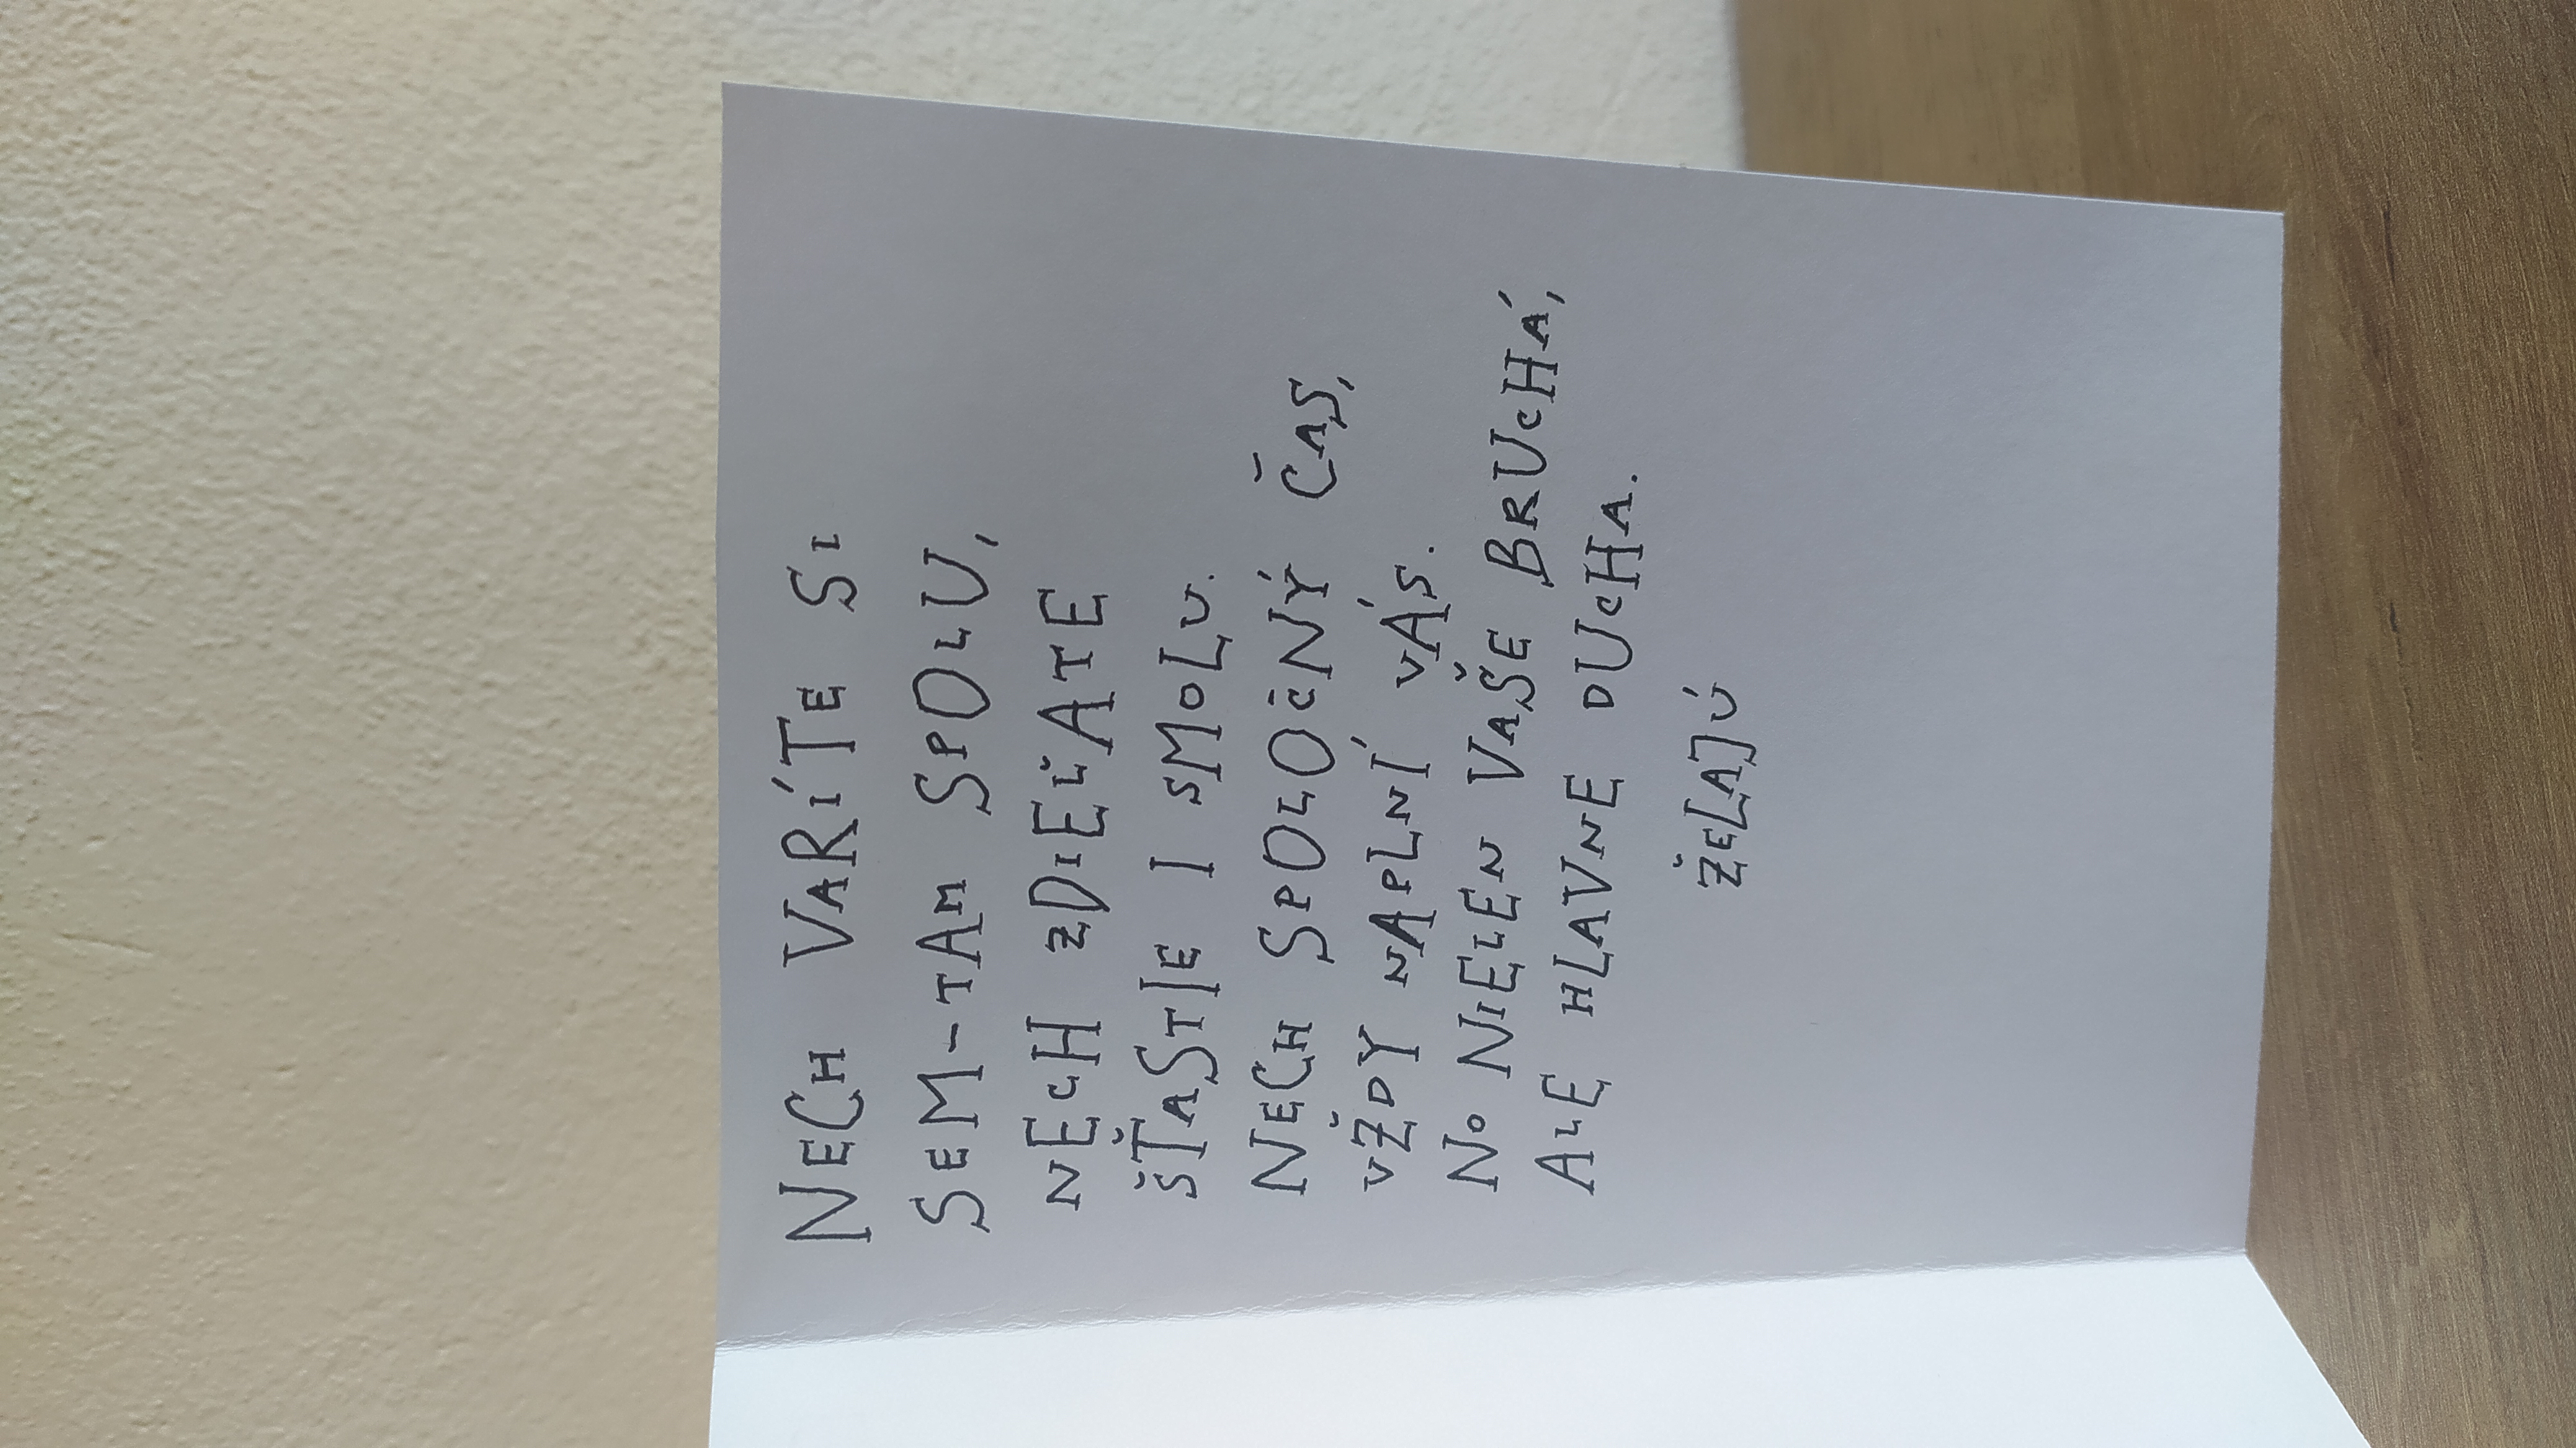 NECH VARÍTE SI
SEM-TAM SPOLU,
NECH ZDIEĽATE
ŠŤASTIE I SMOLU.
NECH SPOLOČNÝ ČAS,
VŽDY NAPLNÍ VÁS.
NO NIELEN VAŠE BRUCHÁ,
ALE HLAVNE DUCHA.
ŽELAJÚ